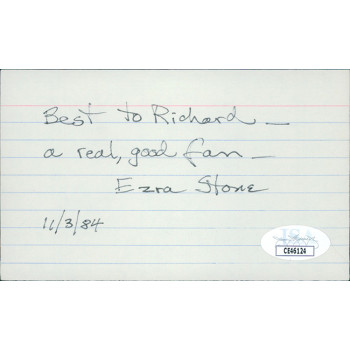 Best to Richard —
a real, good fan —
Ezra Stone
11/3/84
JSA
CE46124